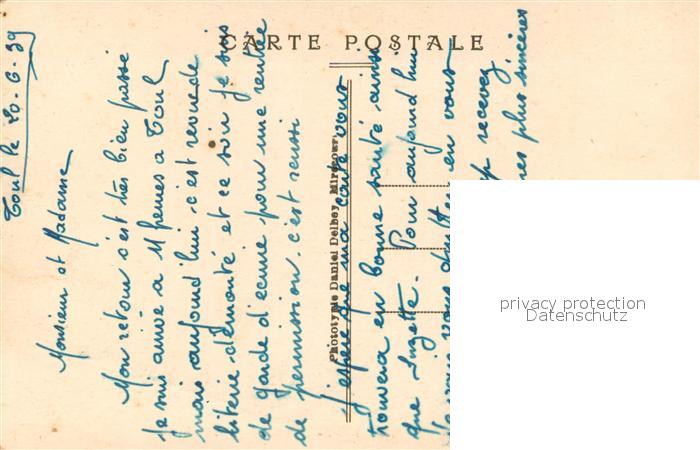 CARTE POSTALE
Toul le 20.6.39
Monsieur et Madame
Mon retour c'est très bien passé
je suis arrivé a 11 heures a Toul
mais aujourd'hui c'est revue de
literie démonté et ce soir je suis
de garde d'ecurie pour une rentrée
de permission. c'est reussi
Phototypie Daniel Delboy, Mirecourt
J'espère que ma carte vous
trouvera en bonne santé ainsi
que Suzette. Pour aujourd'hui
je vous en vous
recevez
plus sincères
privacy protection
Datenschutz